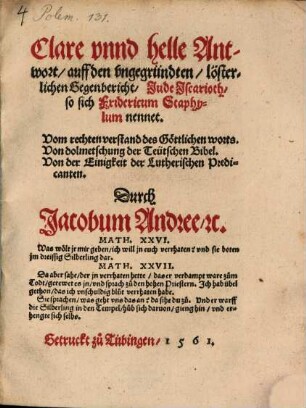 4 Polem. 131.
Clare vnnd helle Ant-
wort/ auff den vngegründten/ löster-
lichen Gegenbericht/ Jude Iscarioth/
so sich Fridericum Staphy-
lum nennet.
Vom rechten verstand des Göttlichen worts.
Von dolmetschung der Teütschen Bibel.
Von der Einigkeit der Lutherischen Predi-
canten.
Durch
Jacobum Andree/ ⁊c.
MATH. XXVI.
Was wölt jr mir geben/ ich will jn euch verrhaten? vnd sie boten
jm dreissig Silberling dar.
MATH. XXVII.
Da aber sahe/ der jn verrhaten hette/ das er verdampt ware zům
Todt/ gerewet es jn/ vnd sprach zů den hohen Priestern. Ich hab übel
gethon/ das ich vnschuldig blůt verrhaten habe.
Sie sprachen/ was geht vns das an? da sihe du zů. Vnd er warff
die Silberling in den Tempel/ hůb sich daruon/ gieng hin/ vnd er-
hengte sich selbs.
Getruckt zů Tübingen/ 1561.